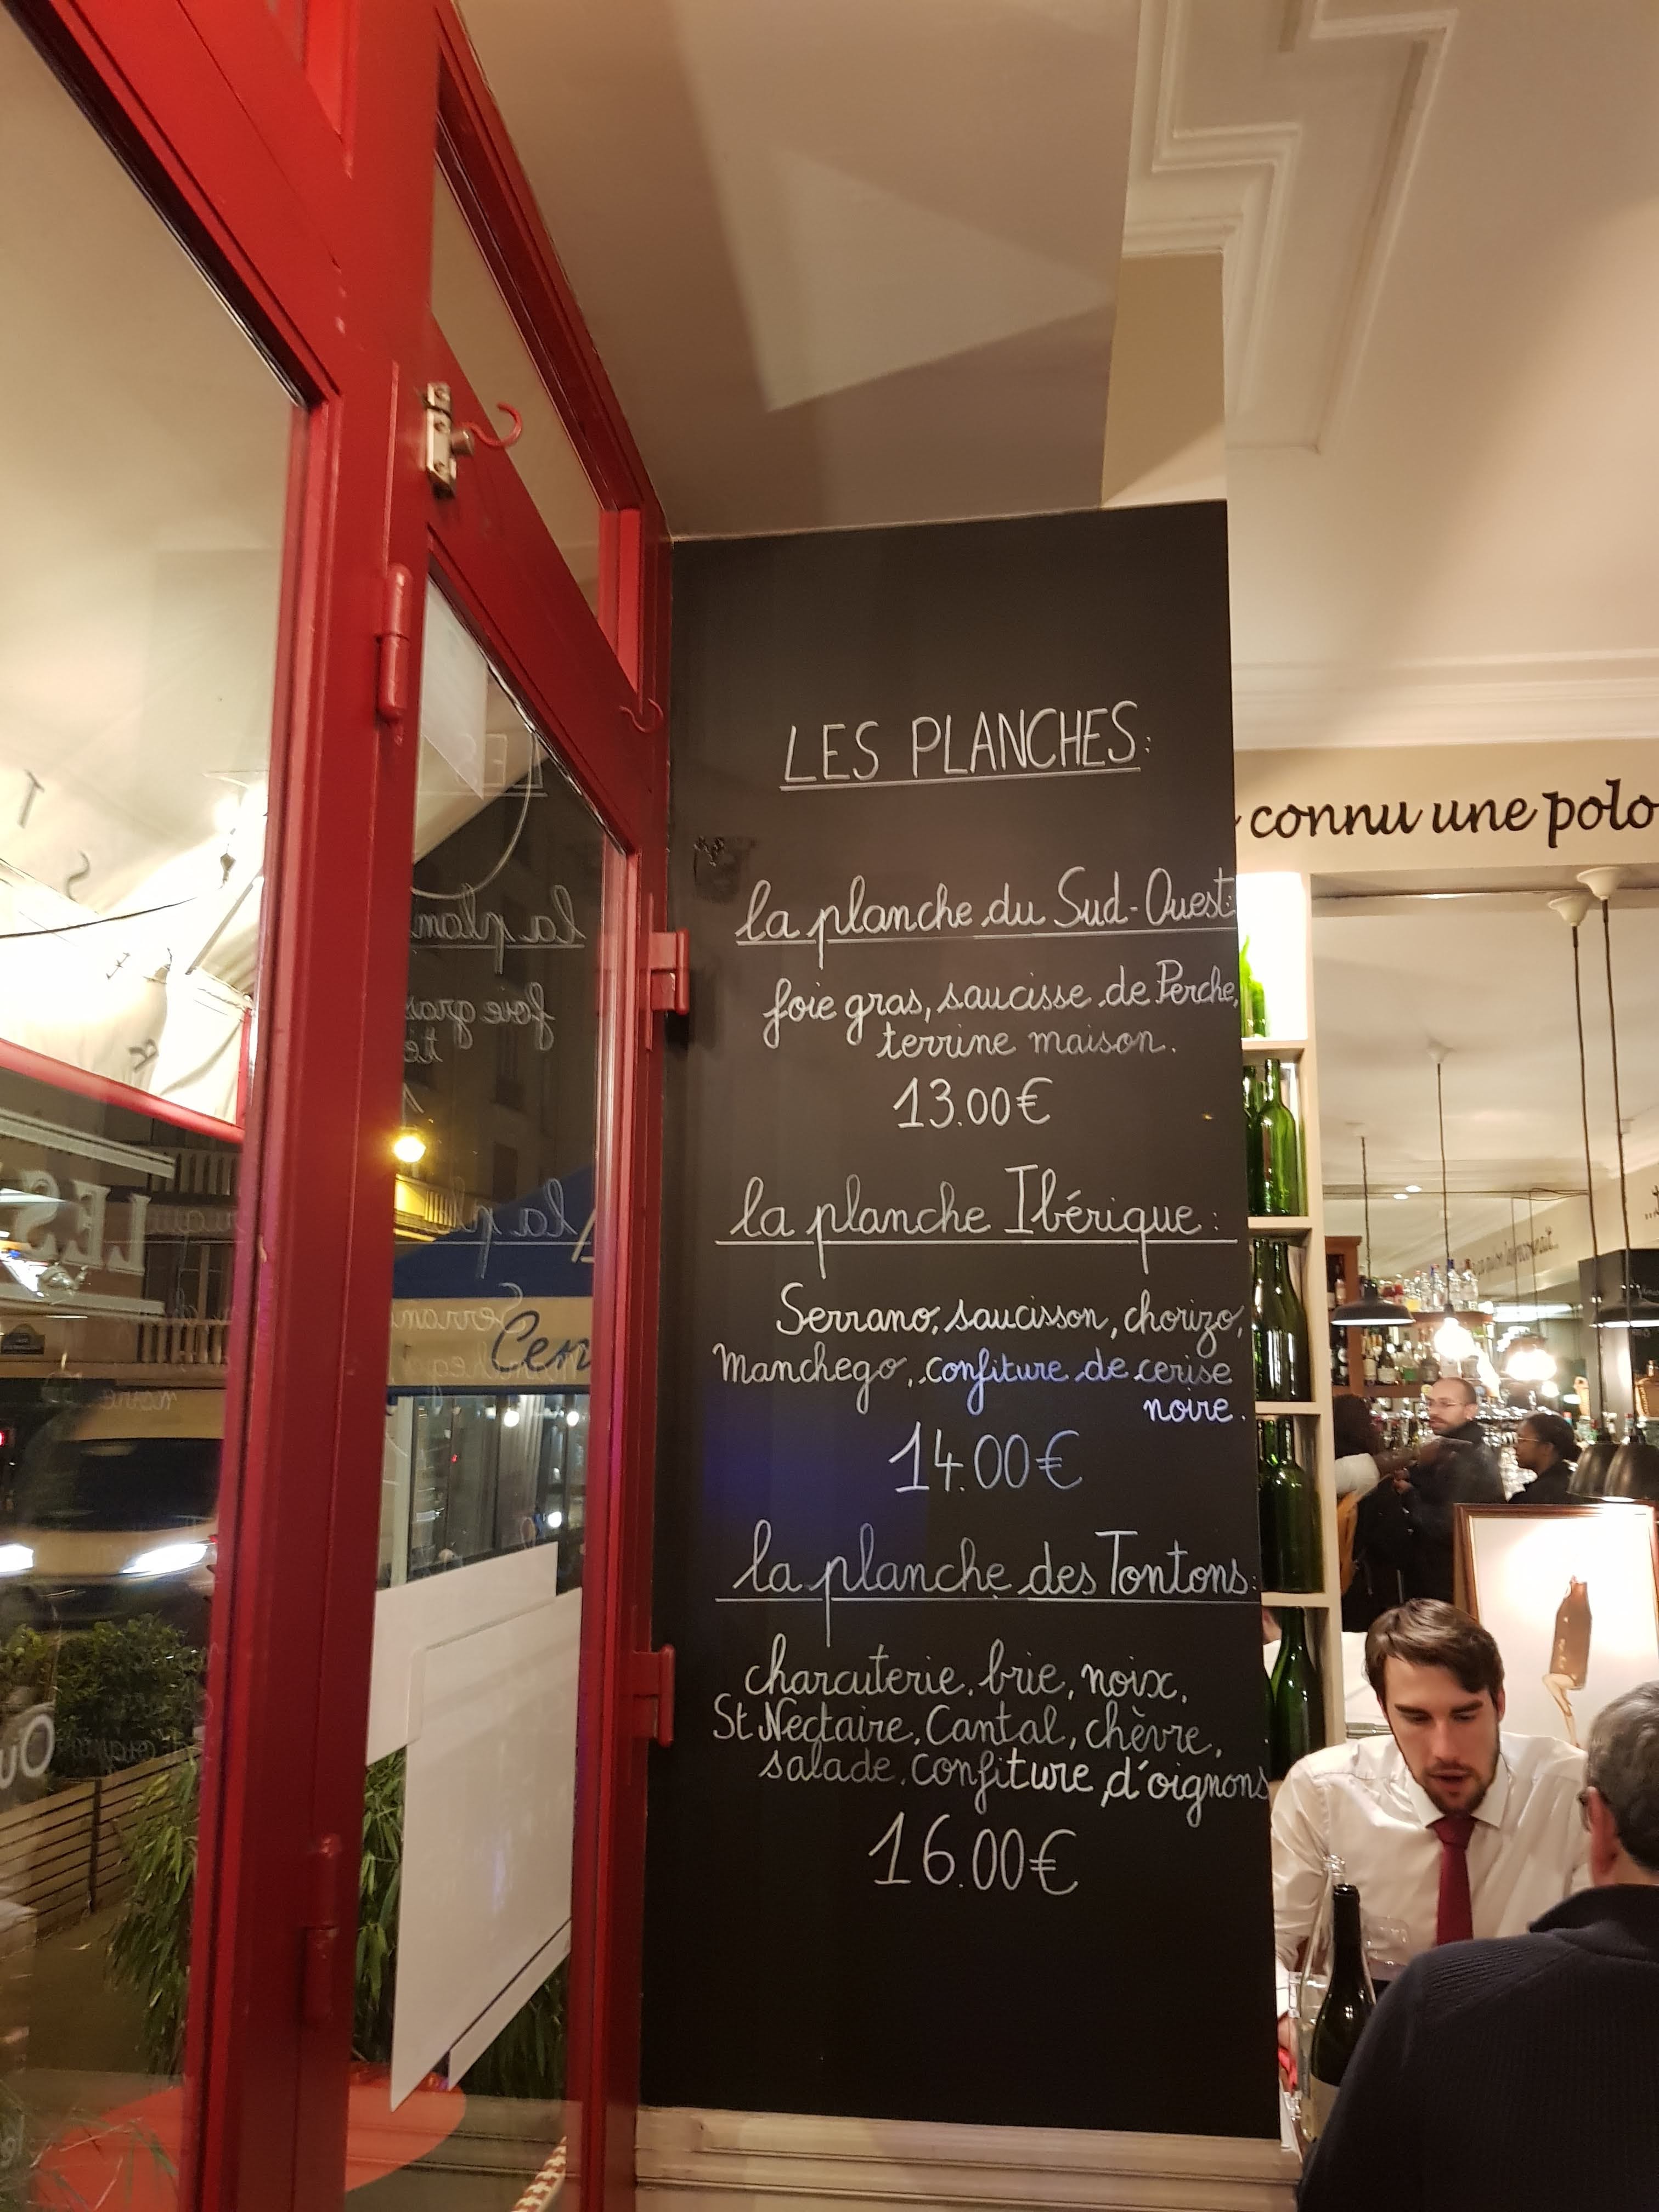 LES PLANCHES:
connu une polo
la planche du Sud-Ouest:
foie gras, saucisse de Perche,
terrine maison.
13.00€
la planche Ibérique:
Serrano, saucisson, chorizo,
Manchego, confiture de cerise
noire.
14.00€
la planche des Tontons:
charcuterie, brie, noix,
St Nectaire, Cantal, chèvre,
salade, confiture d'oignons
16.00€
Cen
LES
Ou